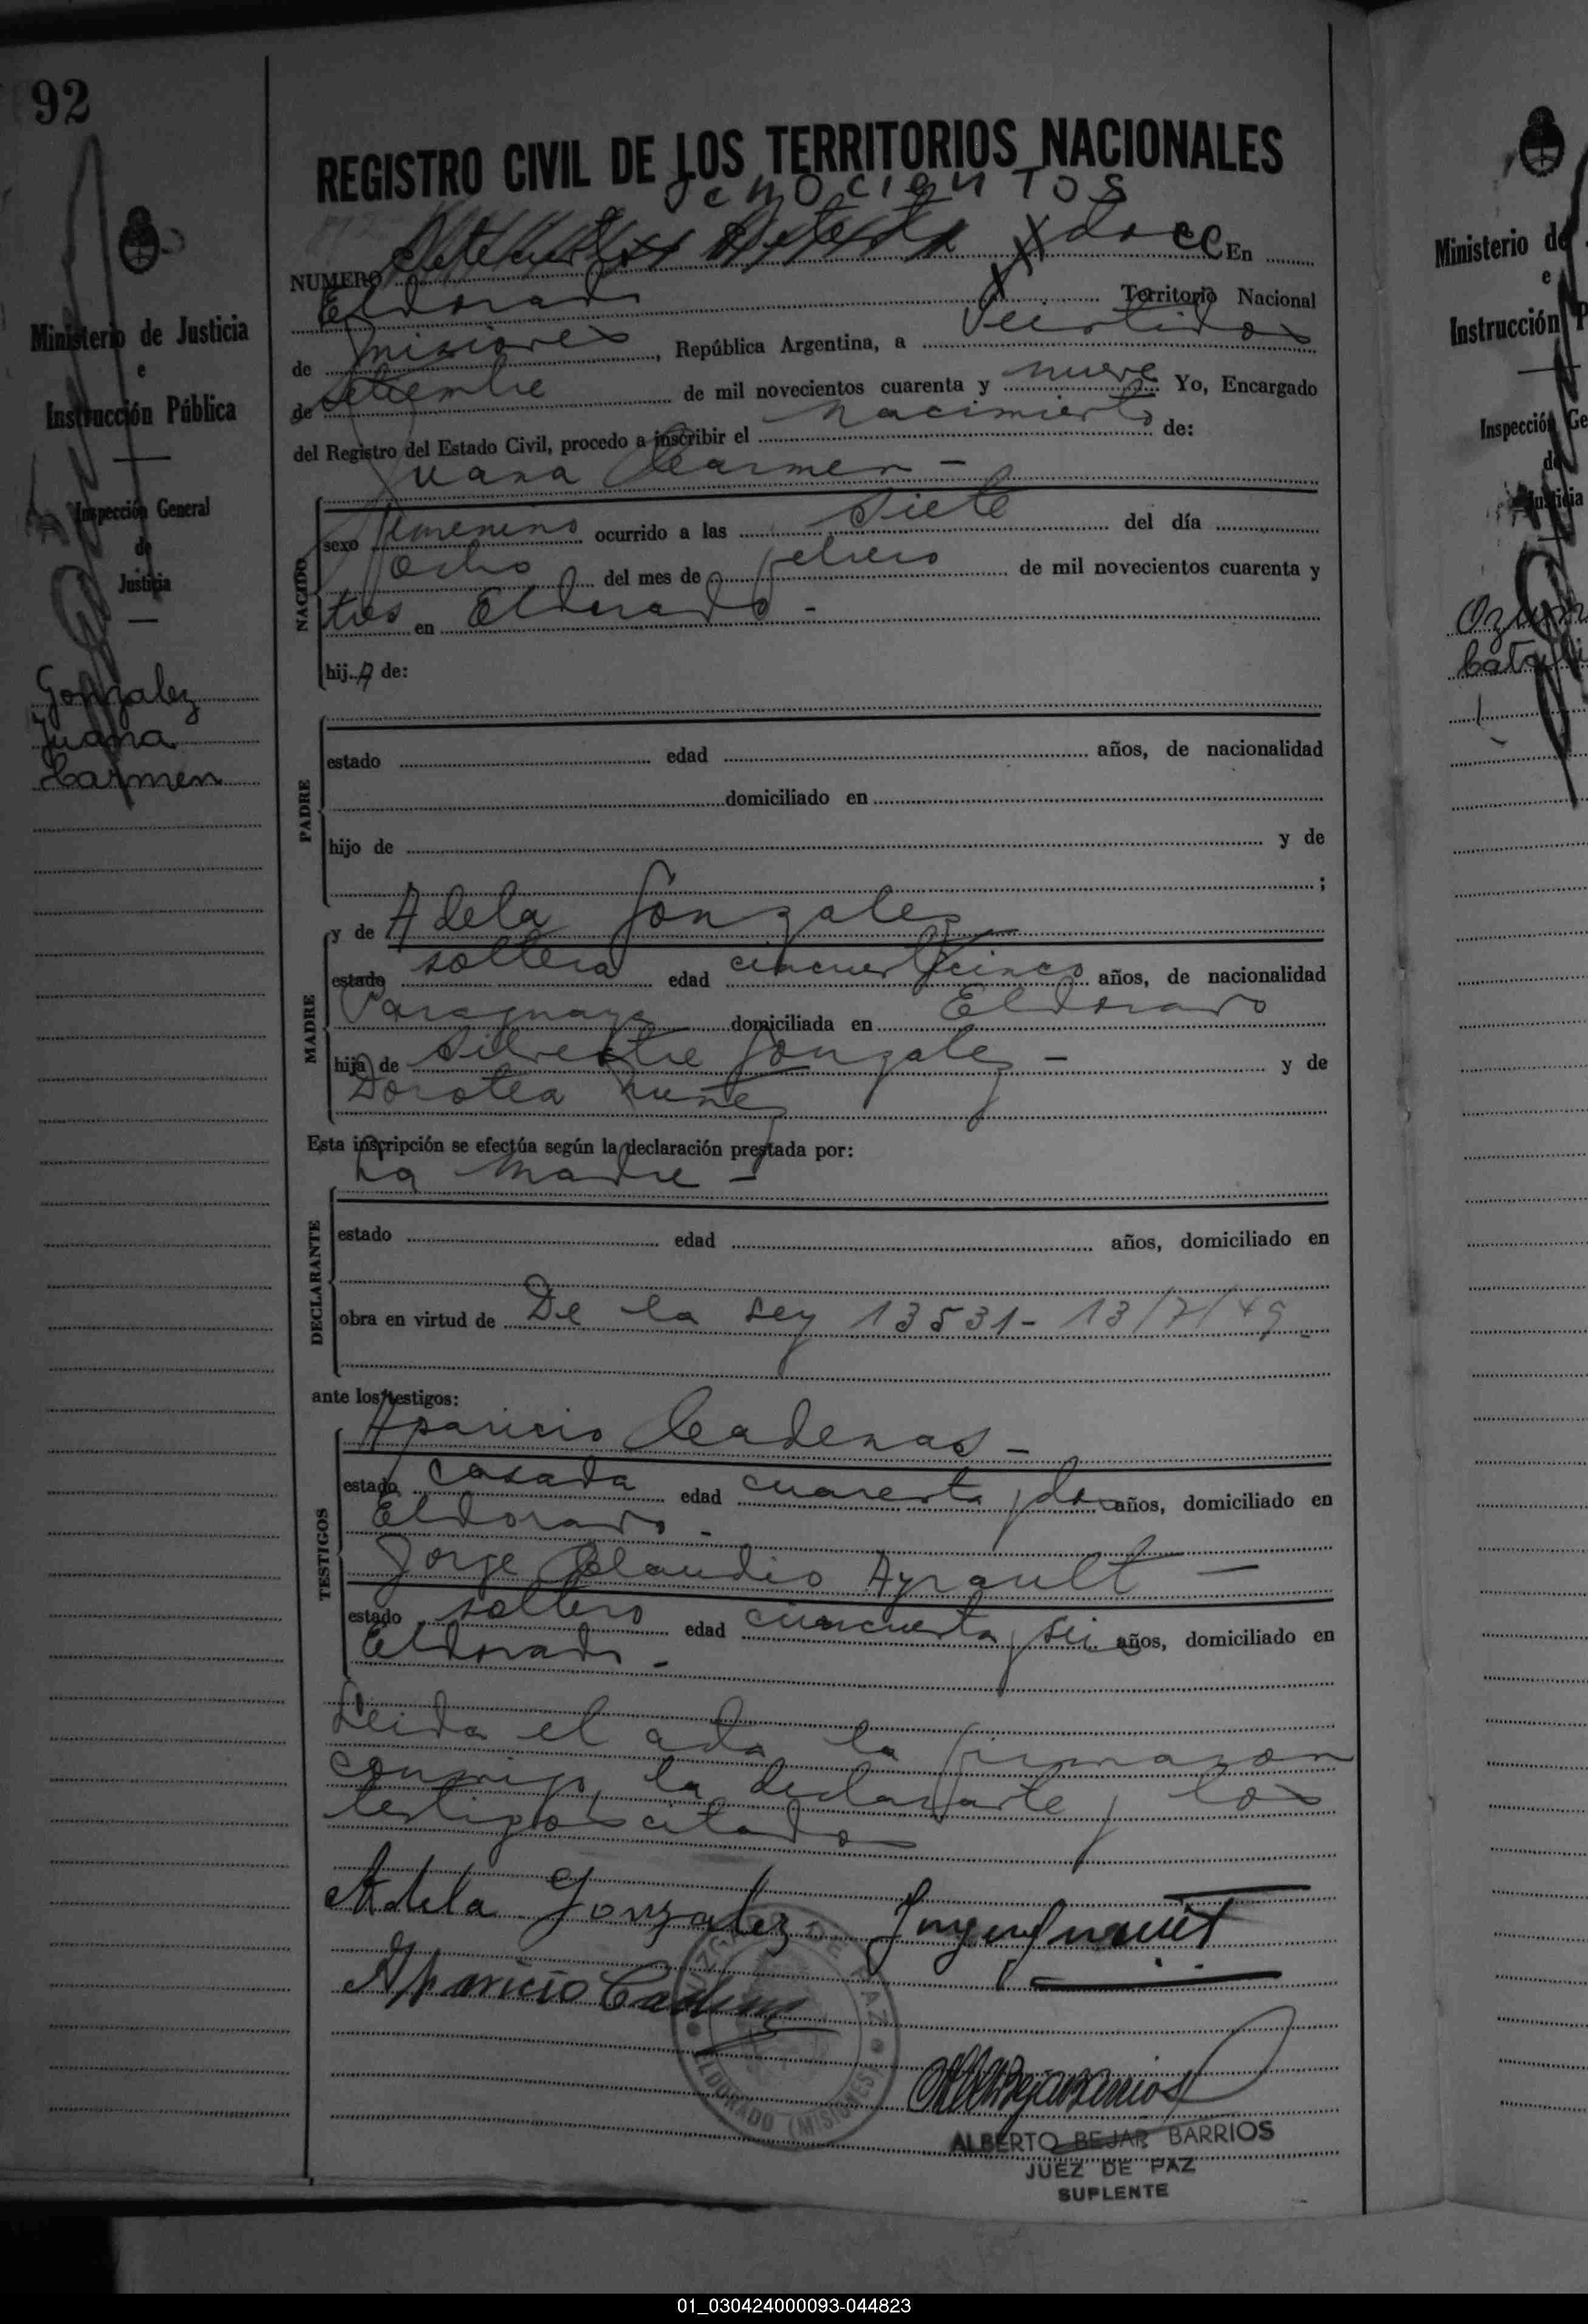 92
Ministerio de Justicia
e
Instrucción Pública
Inspección General
de
Justicia
Gonzalez
Juana
Carmen
REGISTRO CIVIL DE LOS TERRITORIOS NACIONALES
ochocientos
NUMERO doce En
Eldorado Territorio Nacional
de Misiones, República Argentina, a veintidos
de setiembre de mil novecientos cuarenta y nueve Yo, Encargado
del Registro del Estado Civil, procedo a inscribir el nacimiento de:
Juana Carmen -
NACIDO
sexo femenino ocurrido a las siete del día
ocho del mes de febrero de mil novecientos cuarenta y
tres en Eldorado -
hija de:
PADRE
estado edad años, de nacionalidad
domiciliado en
hijo de y de
;
y de Adela Gonzalez
MADRE
estado soltera edad cincuenta y cinco años, de nacionalidad
Paraguaya domiciliada en Eldorado
hija de Silvestre Gonzalez - y de
Dorotea Nuñez
Esta inscripción se efectúa según la declaración prestada por:
La Madre -
DECLARANTE
estado edad años, domiciliado en
obra en virtud de De la Ley 13531 - 13/7/49 -
ante los testigos:
TESTIGOS
Aparicio Cadenas -
estado casada edad cuarenta y dos años, domiciliado en
Eldorado -
Jorge Claudio Ayrault -
estado soltero edad cincuenta y seis años, domiciliado en
Eldorado -
Leida el acta la firmaron
conmigo, la declarante y los
testigos citados
Adela Gonzalez
Aparicio Cadenas
JUZGADO DE PAZ
ELDORADO (MISIONES)
ALBERTO BEJAR BARRIOS
JUEZ DE PAZ
SUPLENTE
Ministerio de
e
Instrucción P
Inspección Ge
de
Justicia
01_030424000093-044823